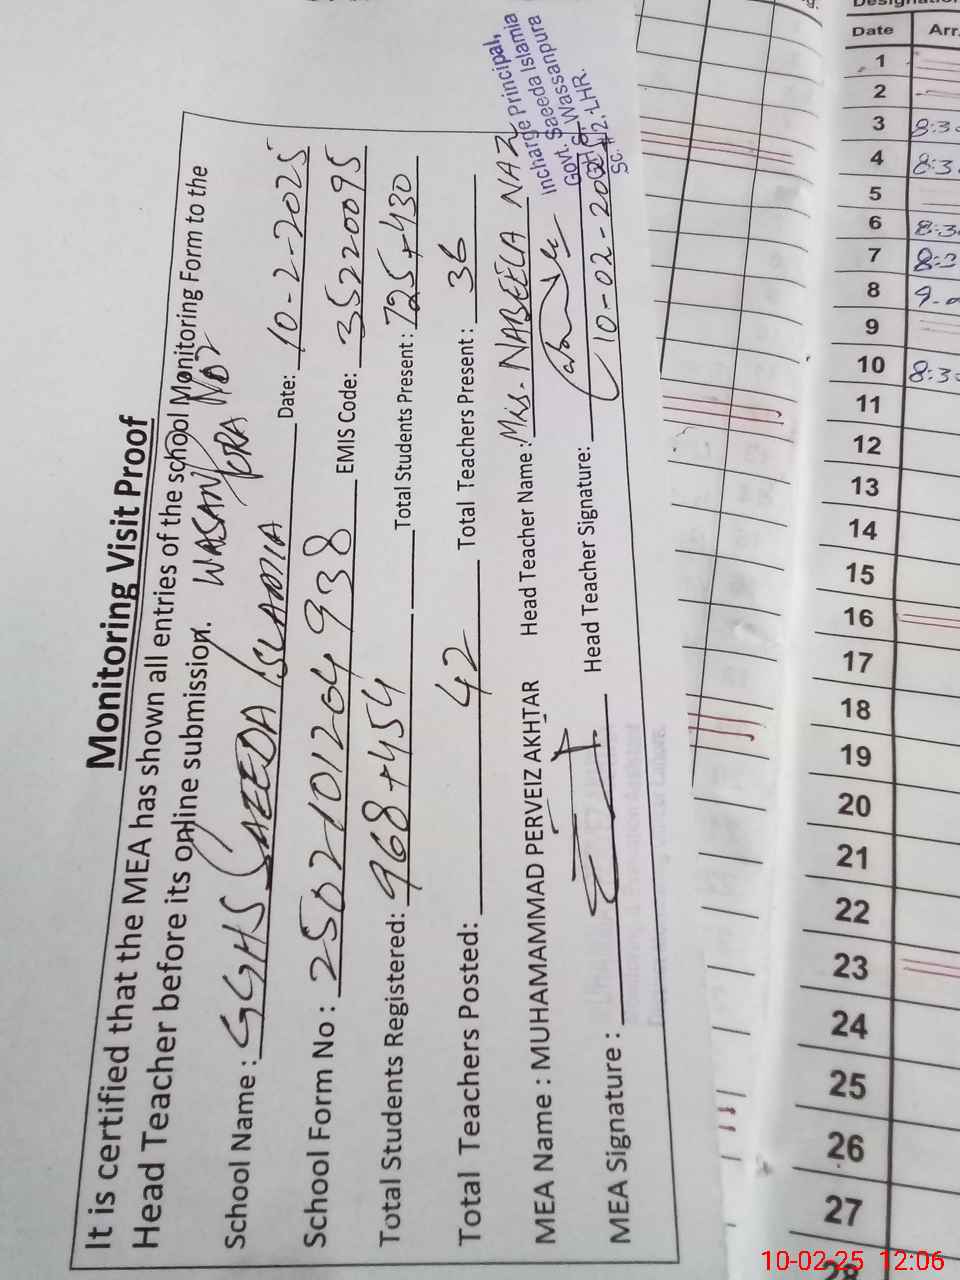 Monitoring Visit Proof
It is certified that the MEA has shown all entries of the school Monitoring Form to the
Head Teacher before its online submission. WASAN PURA NO2
School Name : GGHS SAEEDA ISLAMIA Date: 10-2-2025
School Form No : 2502101264938 EMIS Code: 35220095
Total Students Registered: 968+454 Total Students Present : 725+430
Total Teachers Posted: 42 Total Teachers Present : 36
MEA Name : MUHAMAMMAD PERVEIZ AKHTAR Head Teacher Name : Mrs. NABEELA NAZ
MEA Signature : Head Teacher Signature: 10-02-2025
Incharge Principal,
Govt. Saeeda Islamia
Wassanpura
Sc. #2. LHR.
Date Arr.
1
2
3 8:3
4 8:3
5
6 8:3
7 8:3
8 9-0
9
10 8:3
11
12
13
14
15
16
17
18
19
20
21
22
23
24
25
26
27
28
10-02-25 12:06